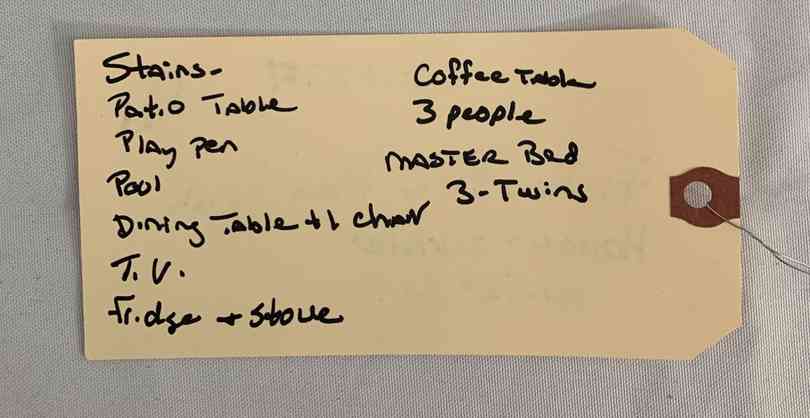 Stairs-
Patio Table
Play pen
Pool
Dining Table +1 chair
T.V.
Fridge + stove
Coffee Table
3 people
MASTER Bed
3-Twins